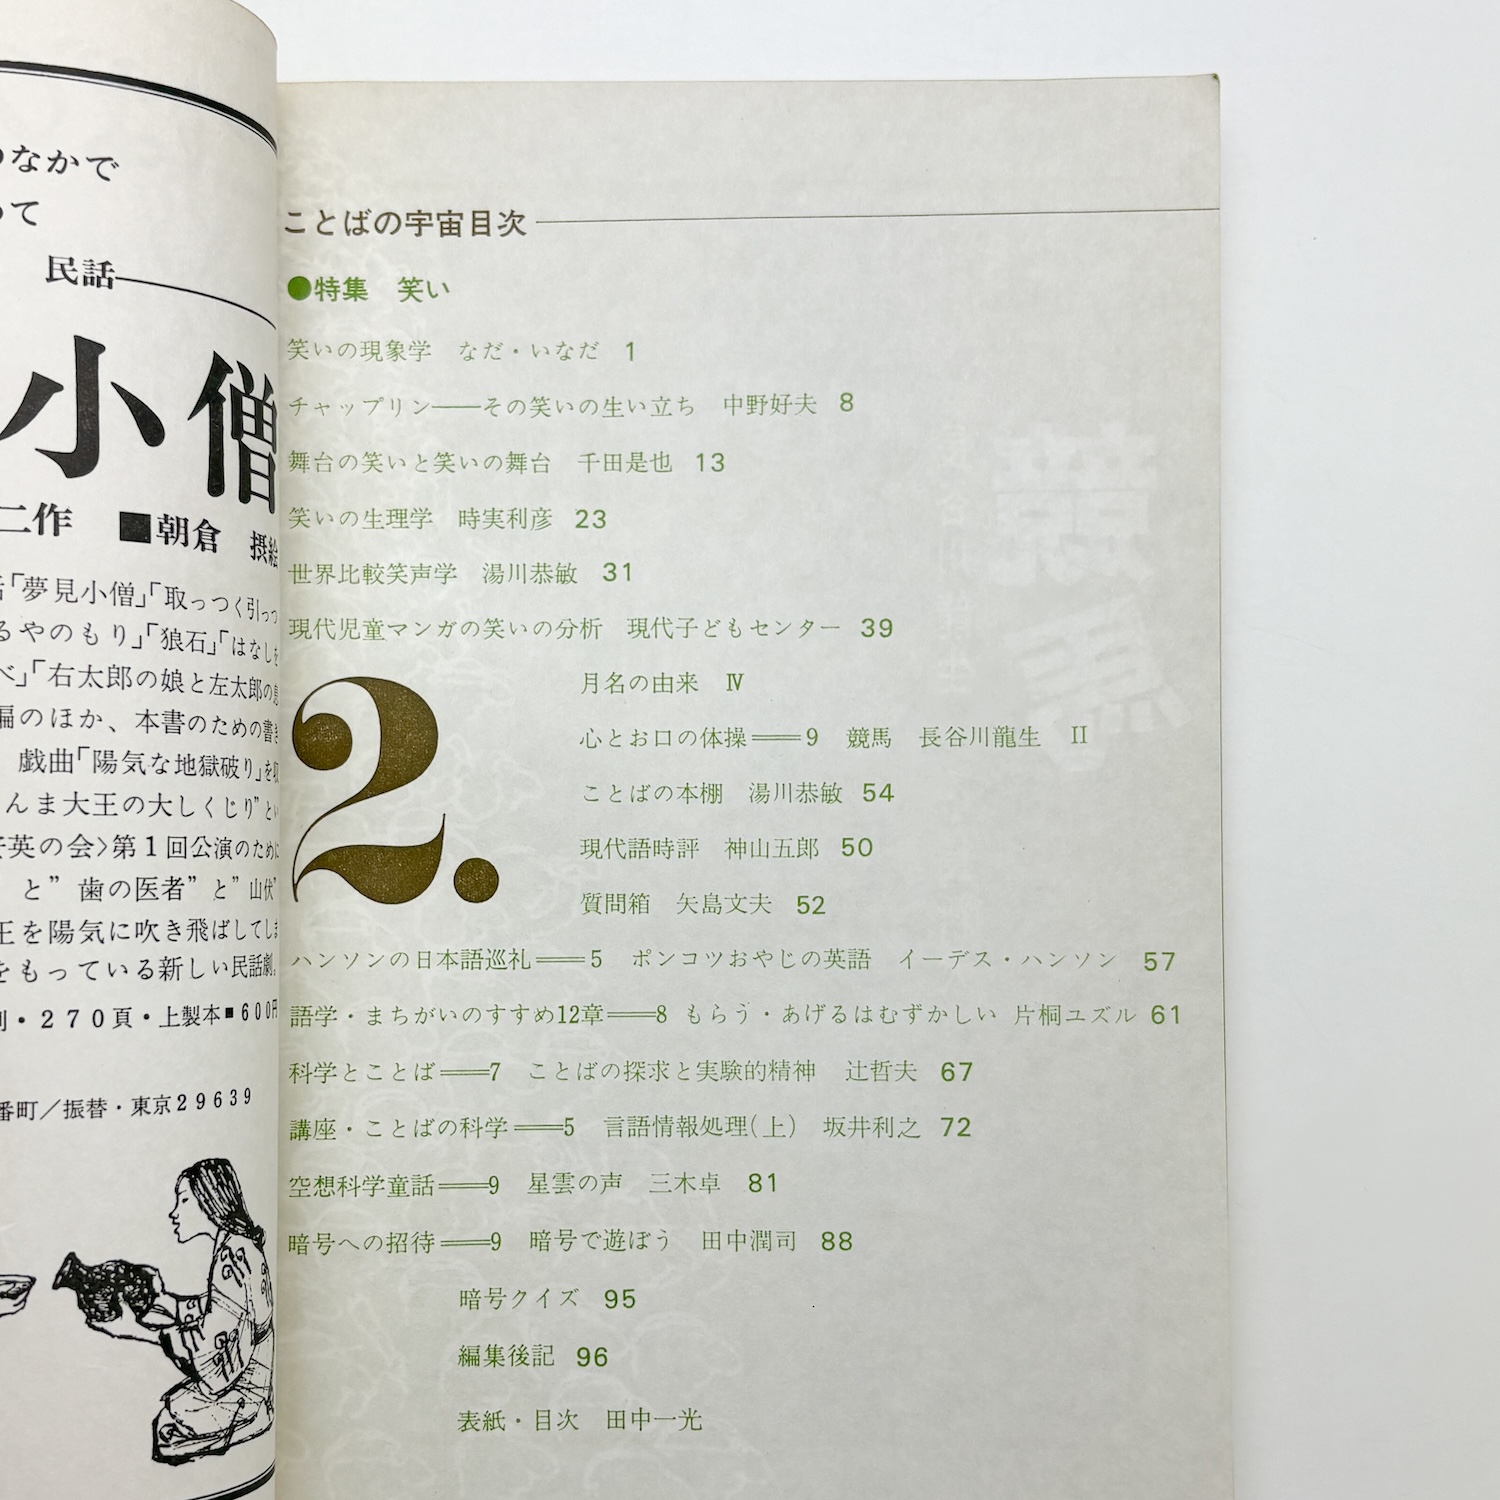 なかで
て
民話
小僧
二作 ■朝倉 摂絵
「夢見小僧」「取っつく引っつ
るやのもり」「狼石」「はなしを
べ」「右太郎の娘と左太郎の息
編のほか、本書のための書き
戯曲「陽気な地獄破り」を収
んま大王の大しくじり”とい
英の会〉第1回公演のために
と”歯の医者”と”山伏”
王を陽気に吹き飛ばしてしま
をもっている新しい民話劇。
・270頁・上製本■600円
番町／振替・東京29639
ことばの宇宙目次
●特集 笑い
笑いの現象学 なだ・いなだ 1
チャップリン——その笑いの生い立ち 中野好夫 8
舞台の笑いと笑いの舞台 千田是也 13
笑いの生理学 時実利彦 23
世界比較笑声学 湯川恭敏 31
現代児童マンガの笑いの分析 現代子どもセンター 39
2.
月名の由来 Ⅳ
心とお口の体操==9 競馬 長谷川龍生 II
ことばの本棚 湯川恭敏 54
現代語時評 神山五郎 50
質問箱 矢島文夫 52
ハンソンの日本語巡礼==5 ポンコツおやじの英語 イーデス・ハンソン 57
語学・まちがいのすすめ12章==8 もらう・あげるはむずかしい 片桐ユズル 61
科学とことば==7 ことばの探求と実験的精神 辻哲夫 67
講座・ことばの科学==5 言語情報処理(上) 坂井利之 72
空想科学童話==9 星雲の声 三木卓 81
暗号への招待==9 暗号で遊ぼう 田中潤司 88
暗号クイズ 95
編集後記 96
表紙・目次 田中一光